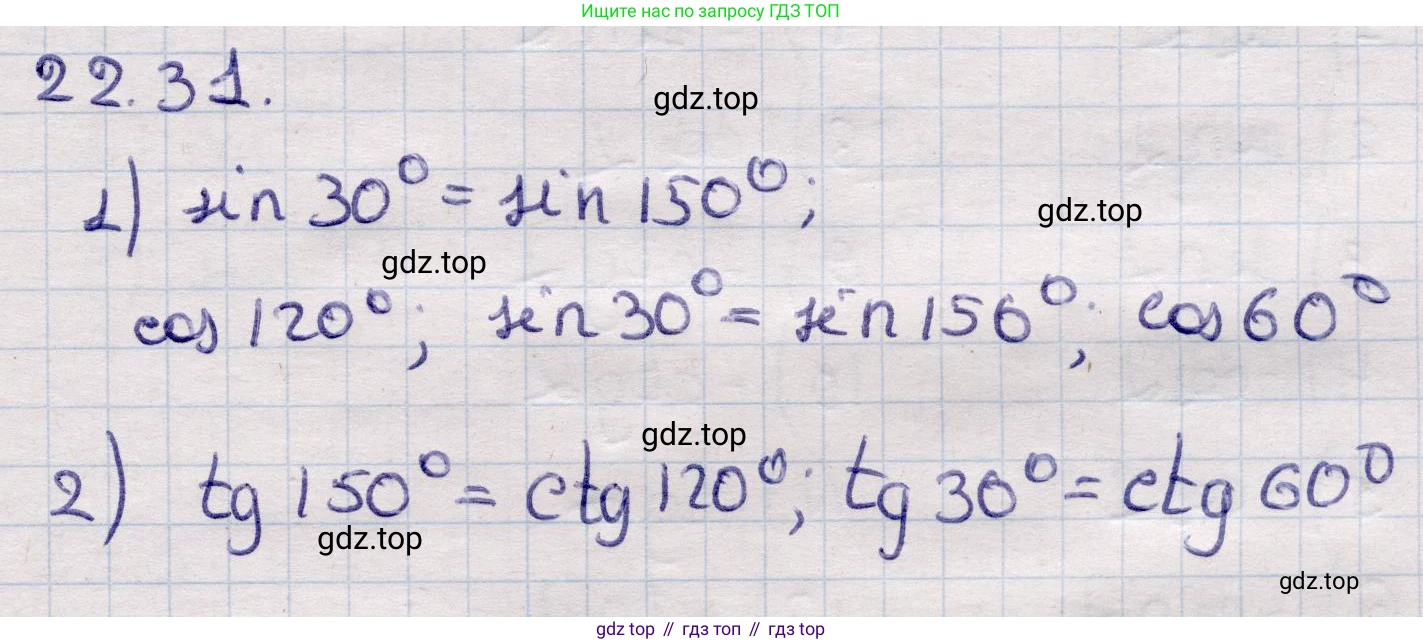 Ищите нас по запросу ГДЗ ТОП
22.31.
gdz.top
1) sin 30° = sin 150°;
gdz.top
gdz.top
cos 120°; sin 30° = sin 150°; cos 60°
gdz.top
2) tg 150° = ctg 120°; tg 30° = ctg 60°
gdz.top
gdz.top
gdz top // гдз топ // гдз top